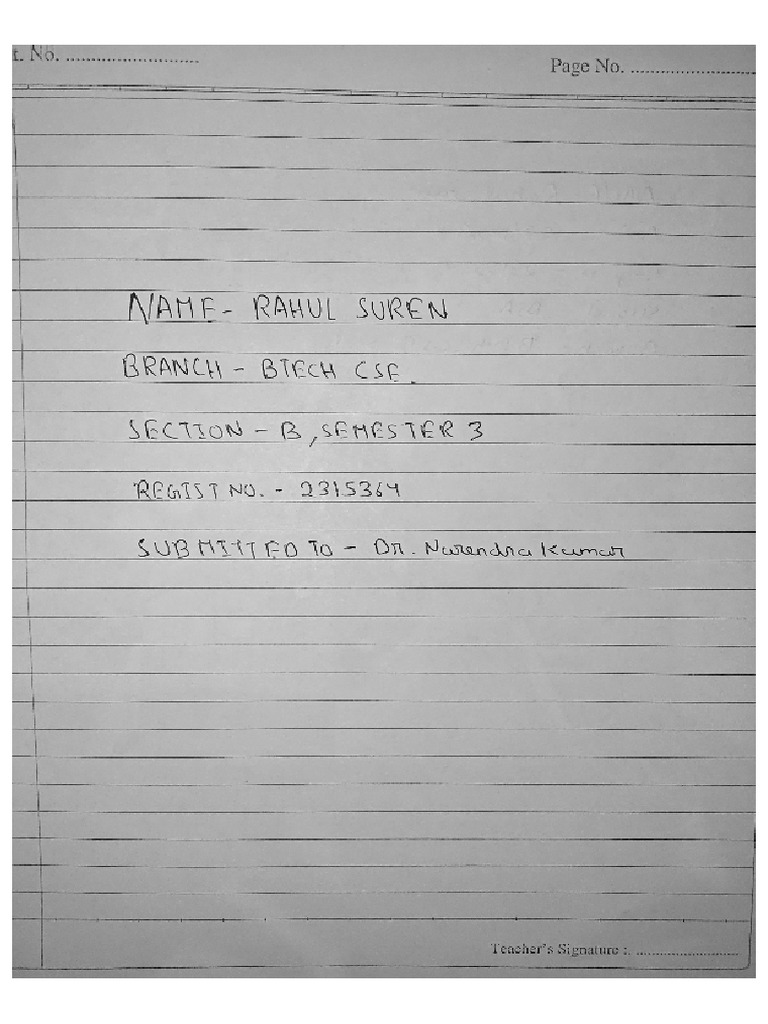 t. No. ............................
Page No. ..........................
NAME - RAHUL SUREN
BRANCH - BTECH CSE.
SECTION - B, SEMESTER 3
REGIST NO. - 2315364
SUBMITTED TO - Dr. Narendra Kumar
Teacher's Signature :. ..........................